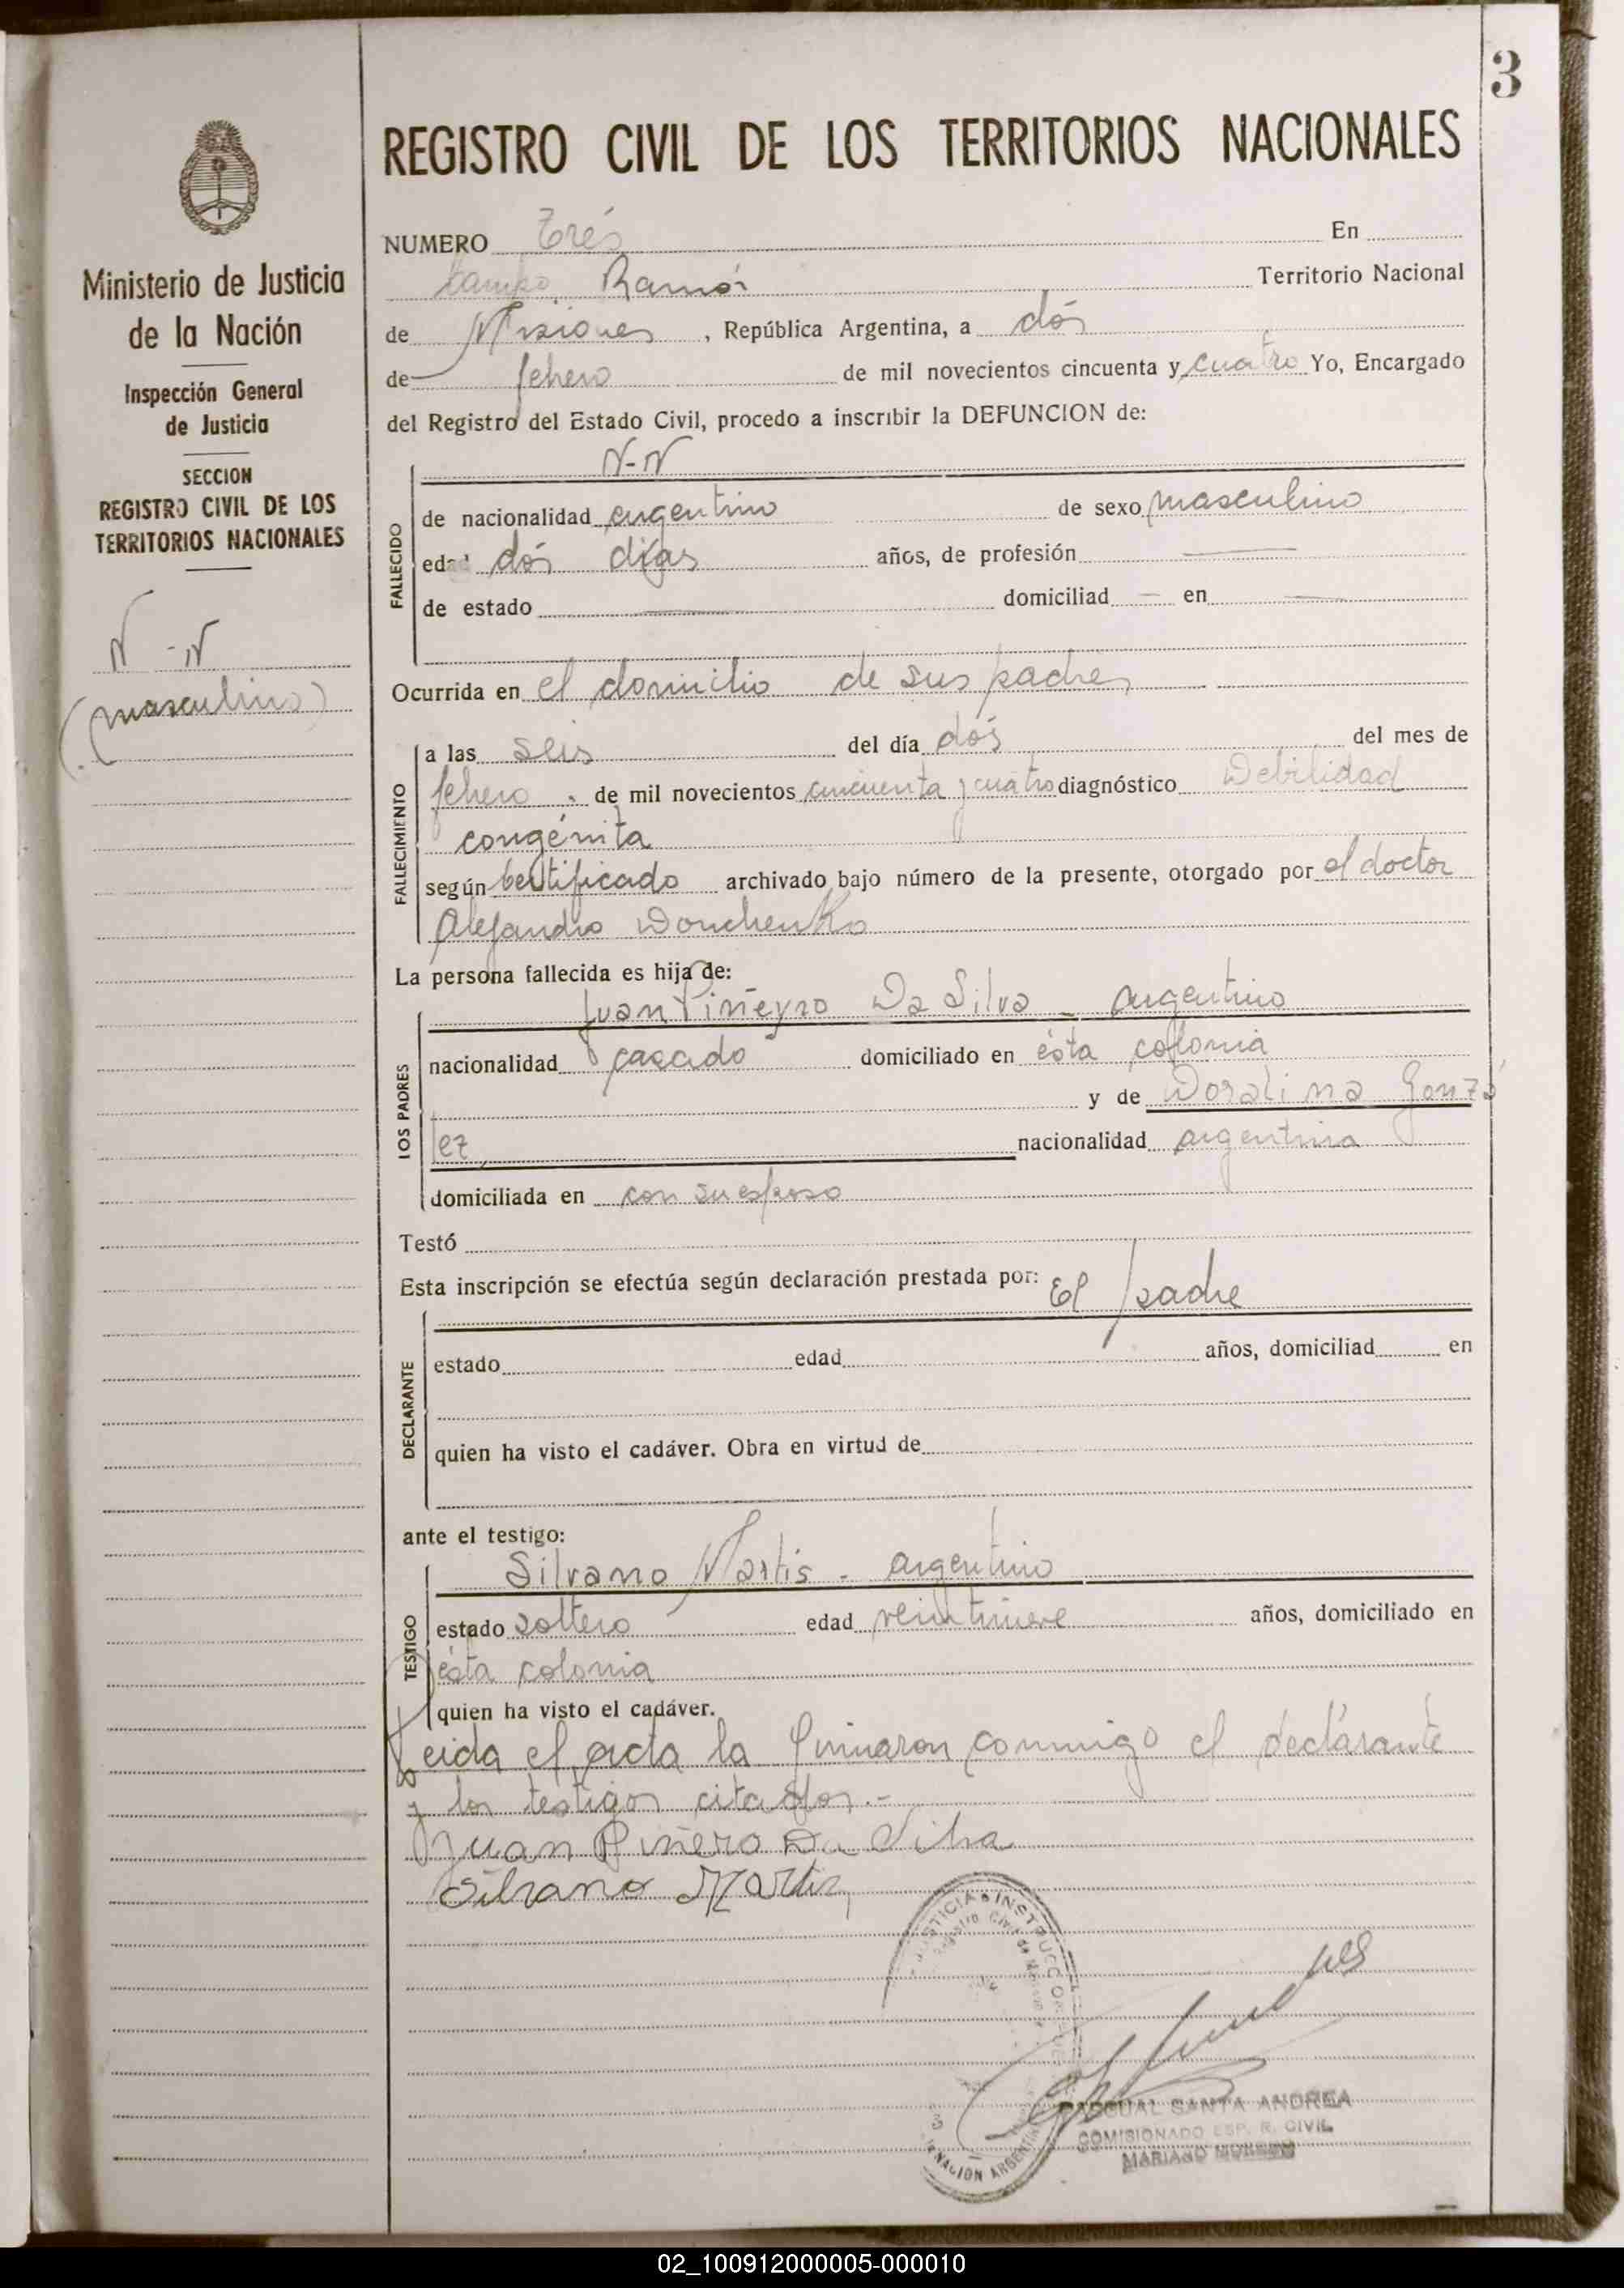 3
REGISTRO CIVIL DE LOS TERRITORIOS NACIONALES
Ministerio de Justicia
de la Nación
Inspección General
de Justicia
SECCION
REGISTRO CIVIL DE LOS
TERRITORIOS NACIONALES
N-N
(masculino)
NUMERO Trés En
Campo Ramón Territorio Nacional
de Misiones, República Argentina, a dós
de febrero de mil novecientos cincuenta y cuatro Yo, Encargado
del Registro del Estado Civil, procedo a inscribir la DEFUNCION de:
N-N
FALLECIDO
de nacionalidad argentino de sexo masculino
edad dós días años, de profesión —
de estado — domiciliad — en —
Ocurrida en el domicilio de sus padres
FALLECIMIENTO
a las seis del día dós del mes de
febrero, de mil novecientos cincuenta y cuatro diagnóstico Debilidad
congénita
según certificado archivado bajo número de la presente, otorgado por el doctor
Alejandro Donchenko
La persona fallecida es hija de:
LOS PADRES
Juan Piñeyro Da Silva - argentino
nacionalidad casado domiciliado en ésta colonia
y de Doralina Gonzá
lez nacionalidad argentina
domiciliada en con su esposo
Testó
Esta inscripción se efectúa según declaración prestada por: El padre
DECLARANTE
estado edad años, domiciliad en
quien ha visto el cadáver. Obra en virtud de
ante el testigo:
TESTIGO
Silvano Martis - argentino
estado soltero edad veintinueve años, domiciliado en
ésta colonia
quien ha visto el cadáver.
Leida el acta la firmaron conmigo el declarante
y los testigos citados.-
Juan Piñero Da Silva
Silvano Martis
JUSTICIA INSTRUCCION
NACION ARGENTINA
PASCUAL SANTA ANDREA
COMISIONADO ESP. R. CIVIL
MARIANO MORENO
02_100912000005-000010